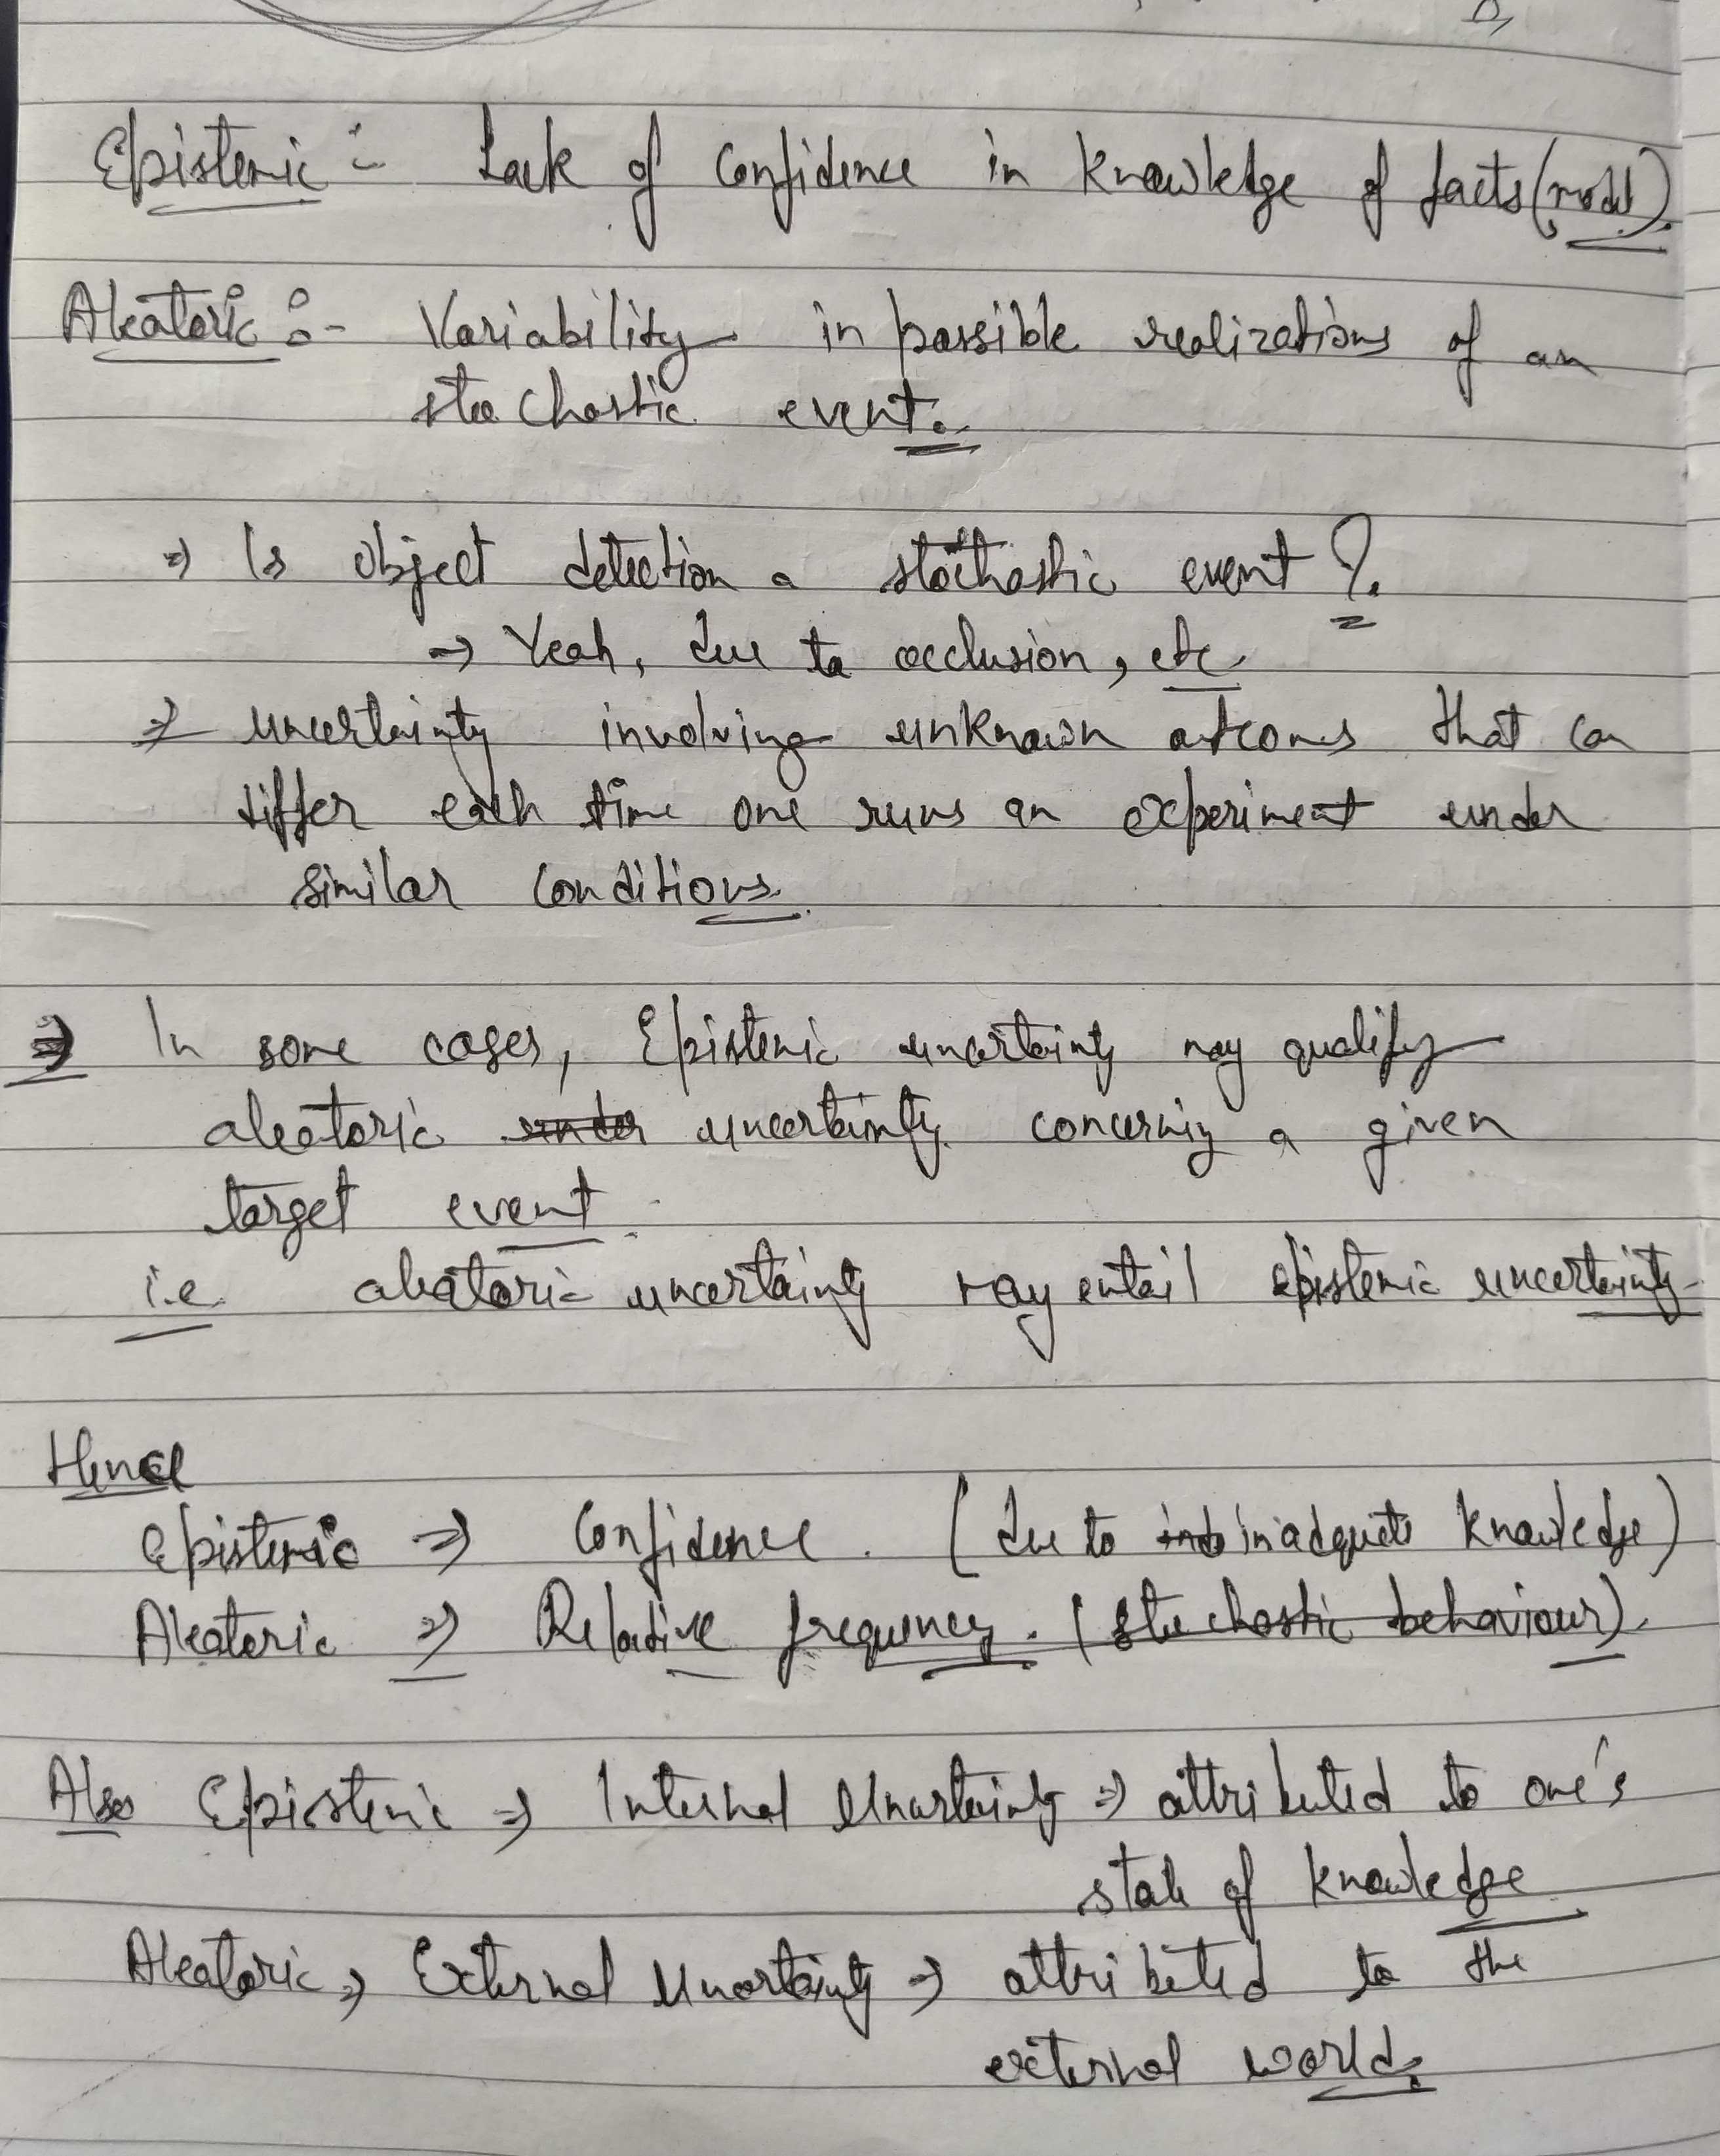 Epistemic :- Lack of confidence in knowledge of facts (model).
Aleatoric :- Variability in possible realizations of an
stochastic event.
=> Is object detection a stochastic event ?
→ Yeah, due to occlusion, etc.
=> uncertainty involving unknown outcomes that can
differ each time one runs an experiment under
similar conditions.
=> In some cases, Epistemic uncertainty may qualify
aleatoric uncertainty concerning a given
target event.
i.e. aleatoric uncertainty may entail epistemic uncertainty.
Hence
Epistemic => Confidence. (due to inadequate knowledge)
Aleatoric => Relative frequency. (stochastic behaviour).
Also Epistemic => Internal Uncertainty => attributed to one's
state of knowledge
Aleatoric => External Uncertainty => attributed to the
external world.